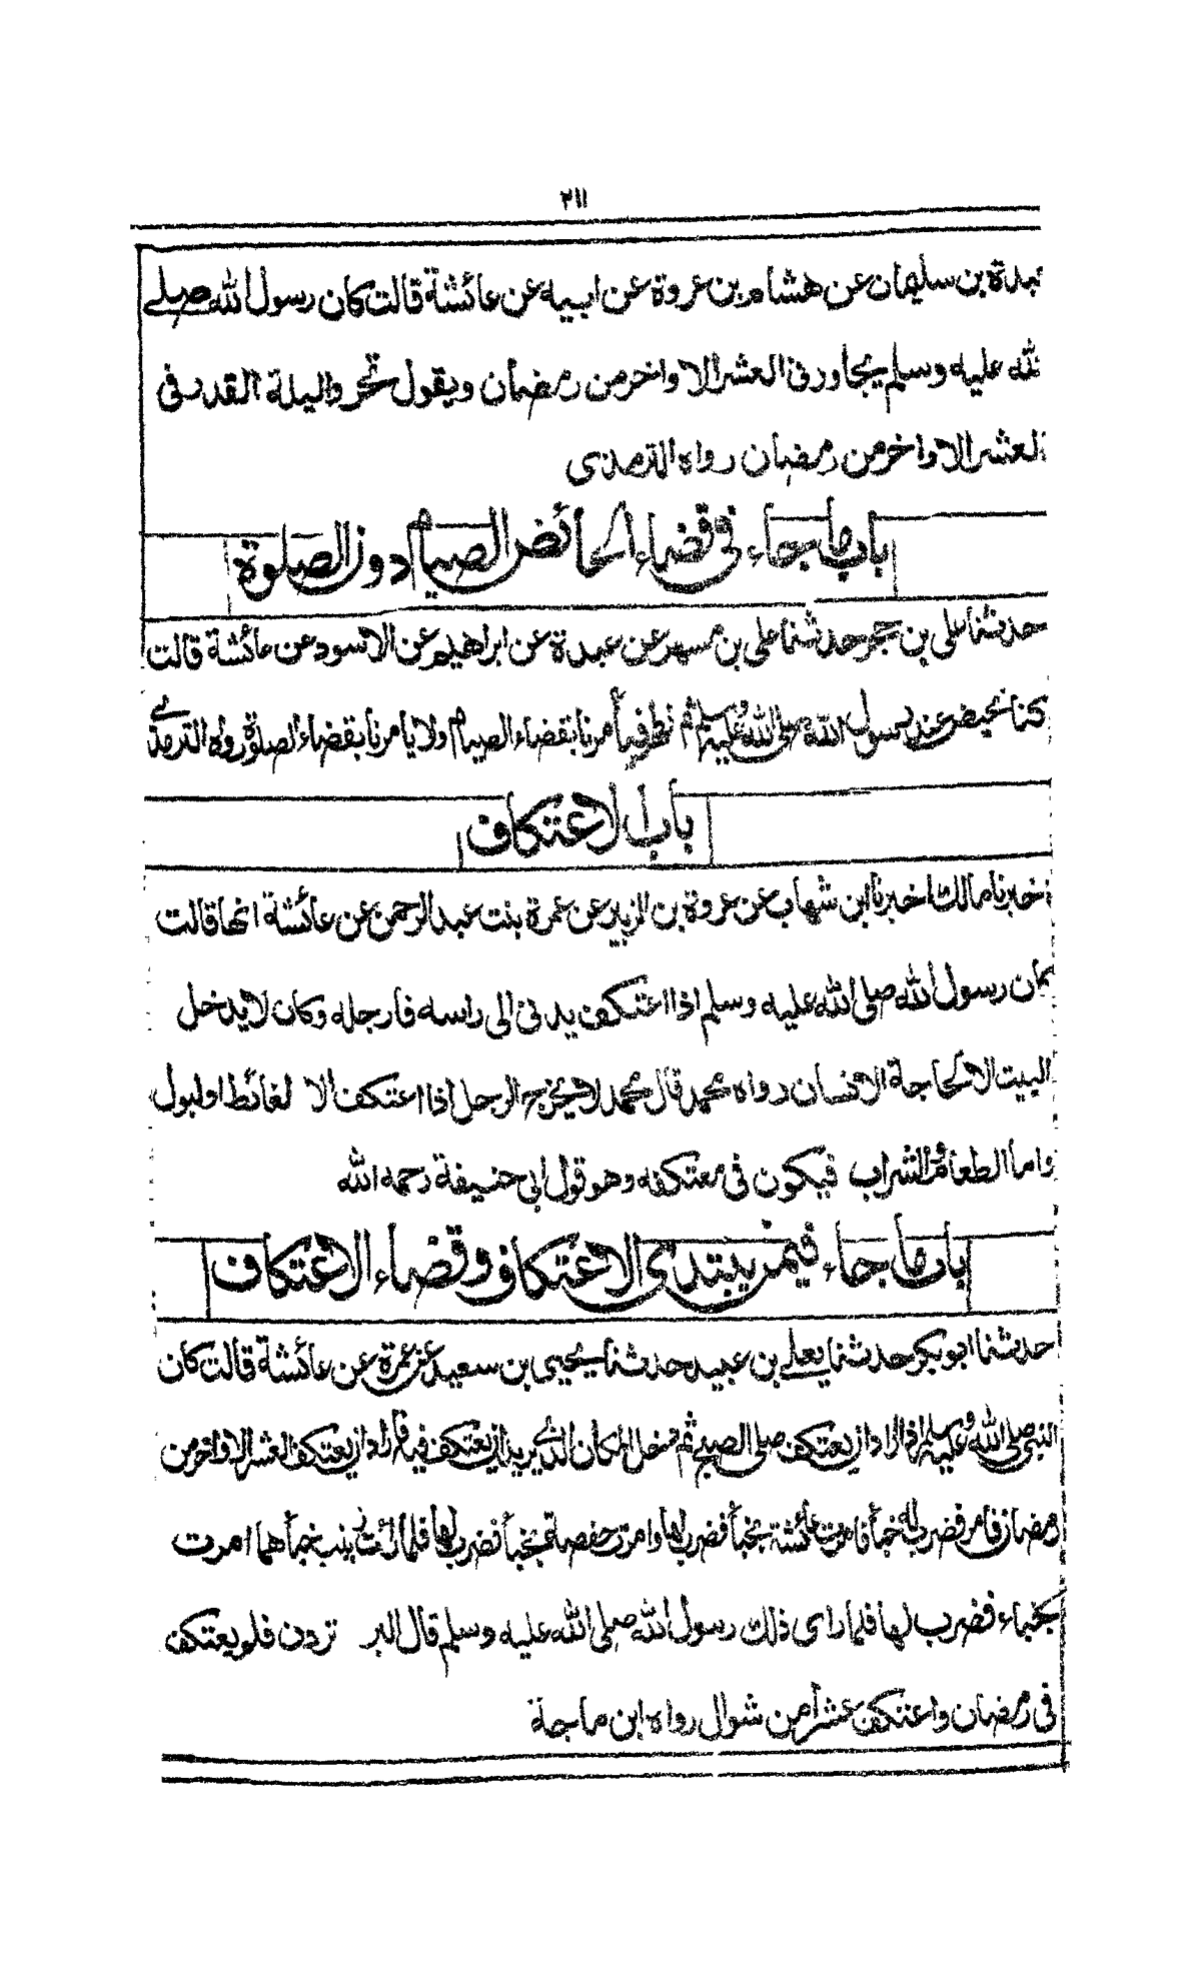 ٢١١
عبدة بن سليمان عن هشام بن عروة عن ابيه عن عائشة قالت كان رسول الله صلے
الله عليه وسلم يجاور فى العشر الاواخر من رمضان ويقول تحروا ليلة القدر فى
العشر الاواخر من رمضان رواه الترمذى
باب ما جاء فى قضاء الحائض الصيام دون الصلوة
حدثنا على بن حجر حدثنا على بن مسهر عن عبيدة عن ابراهيم عن الاسود عن عائشة قالت
كنا نحيض عند رسول الله صلى الله عليه وسلم ثم نطهر فيأمرنا بقضاء الصيام ولا يأمرنا بقضاء الصلوة رواه الترمذى
باب الاعتكاف
اخبرنا مالك اخبرنا ابن شهاب عن عروة بن الزبير عن عمرة بنت عبد الرحمن عن عائشة انها قالت
كان رسول الله صلى الله عليه وسلم اذا اعتكف يدنى الى راسه فارجله وكان لا يدخل
البيت الا لحاجة الانسان رواه محمد قال محمد لا يخرج الرجل اذا اعتكف الا لغائط او لبول
واما الطعام والشراب فيكون فى معتكفه وهو قول ابى حنيفة رحمه الله
باب ما جاء فيمن يبتدى الاعتكاف وقضاء الاعتكاف
حدثنا ابو بكر حدثنا يعلے بن عبيد حدثنا يحيى بن سعيد عن عمرة عن عائشة قالت كان
النبى صلى الله عليه وسلم اذا اراد ان يعتكف صلى الصبح ثم دخل المكان الذى يريد ان يعتكف فيه فاراد ان يعتكف العشر الاواخر من
رمضان فامر فضرب له خبأ فامرت عائشة بخبأ فضرب لها وامرت حفصة بخبأ فضرب لها فلما رأت زينب خبأهما امرت
بخباء فضرب لها فلما راى ذلك رسول الله صلى الله عليه وسلم قال البر تردن فلم يعتكف
فى رمضان واعتكف عشرا من شوال رواه ابن ماجة